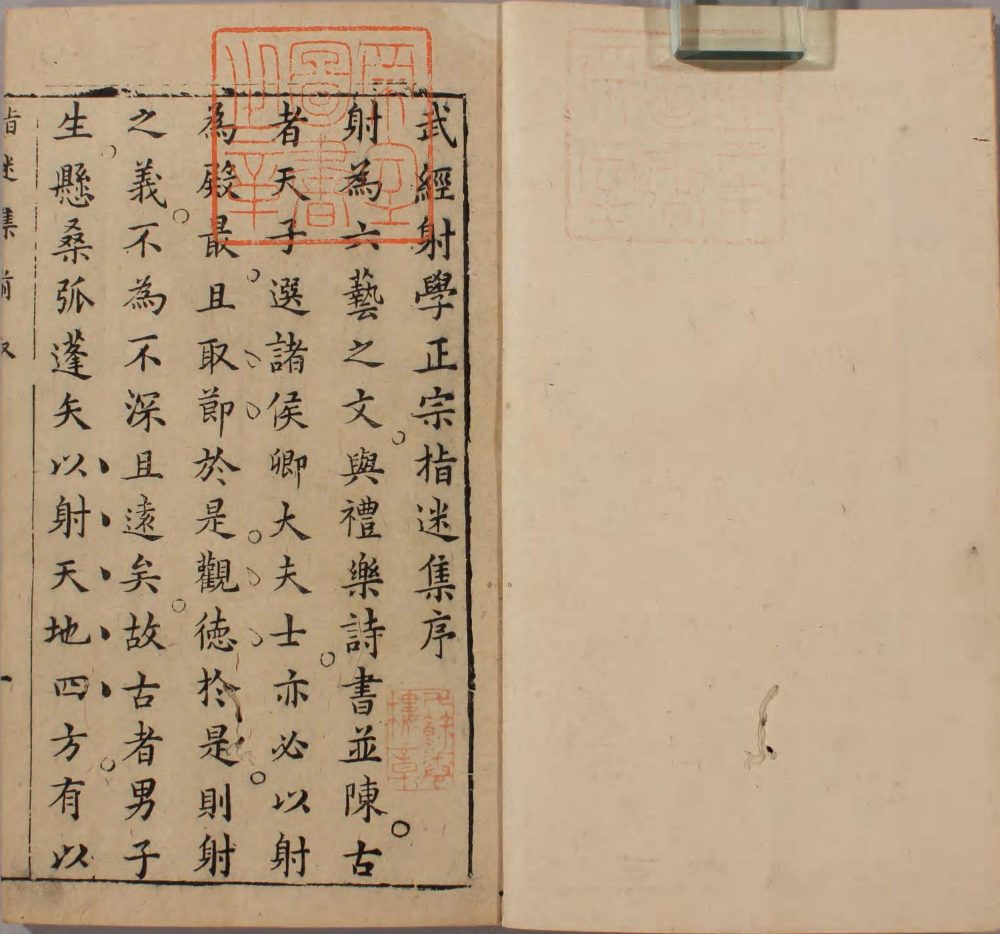 武經射學正宗指迷集序
射為六藝之文與禮樂詩書並陳古
者天子選諸侯卿大夫士亦必以射
為殿最且取節於是觀德於是則射
之義不為不深且遠矣故古者男子
生懸桑弧蓬矢以射天地四方有以
指迷集前叙
一